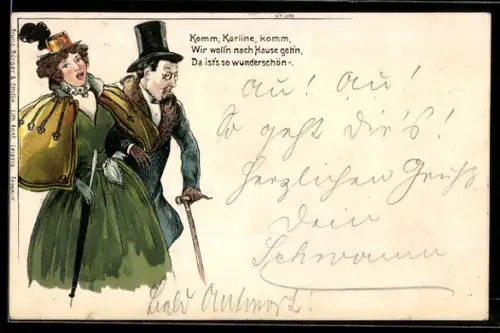 Komm, Karline, komm,
Wir woll'n nach Hause geh'n,
Da ist's so wunderschön -.
Au! Au!
So geht Dir's!
Herzlichen Gruß
Dein
Schwamm
Bald Antwort!